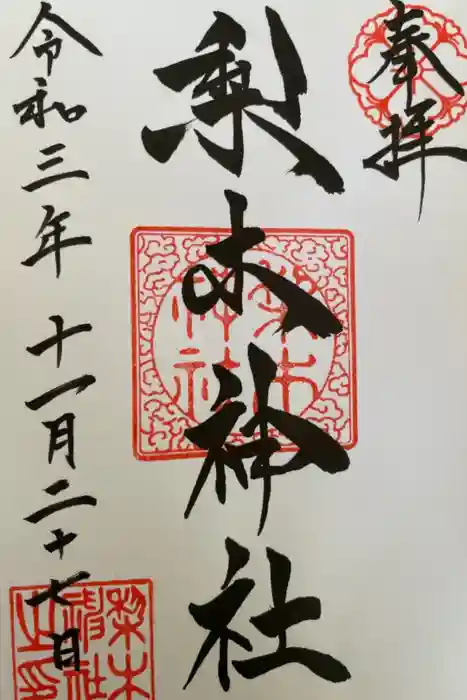 奉拝
梨木神社
令和三年十一月二十七日
梨木神社
梨木
神社
之印